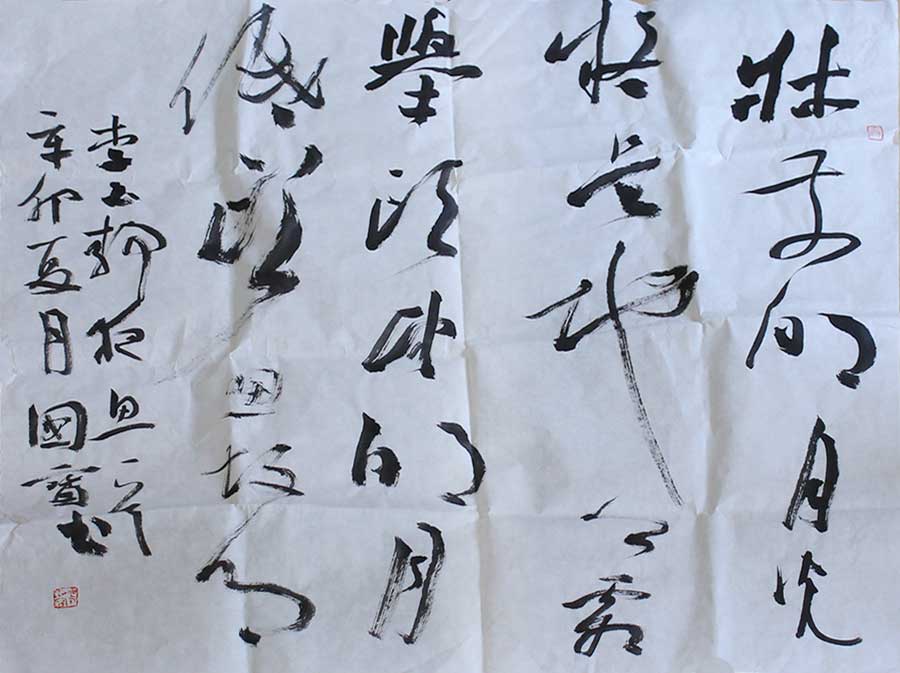 牀前明月光
疑是地上霜
舉頭望明月
低頭思故鄉
李白靜夜思
辛卯夏月國寶書